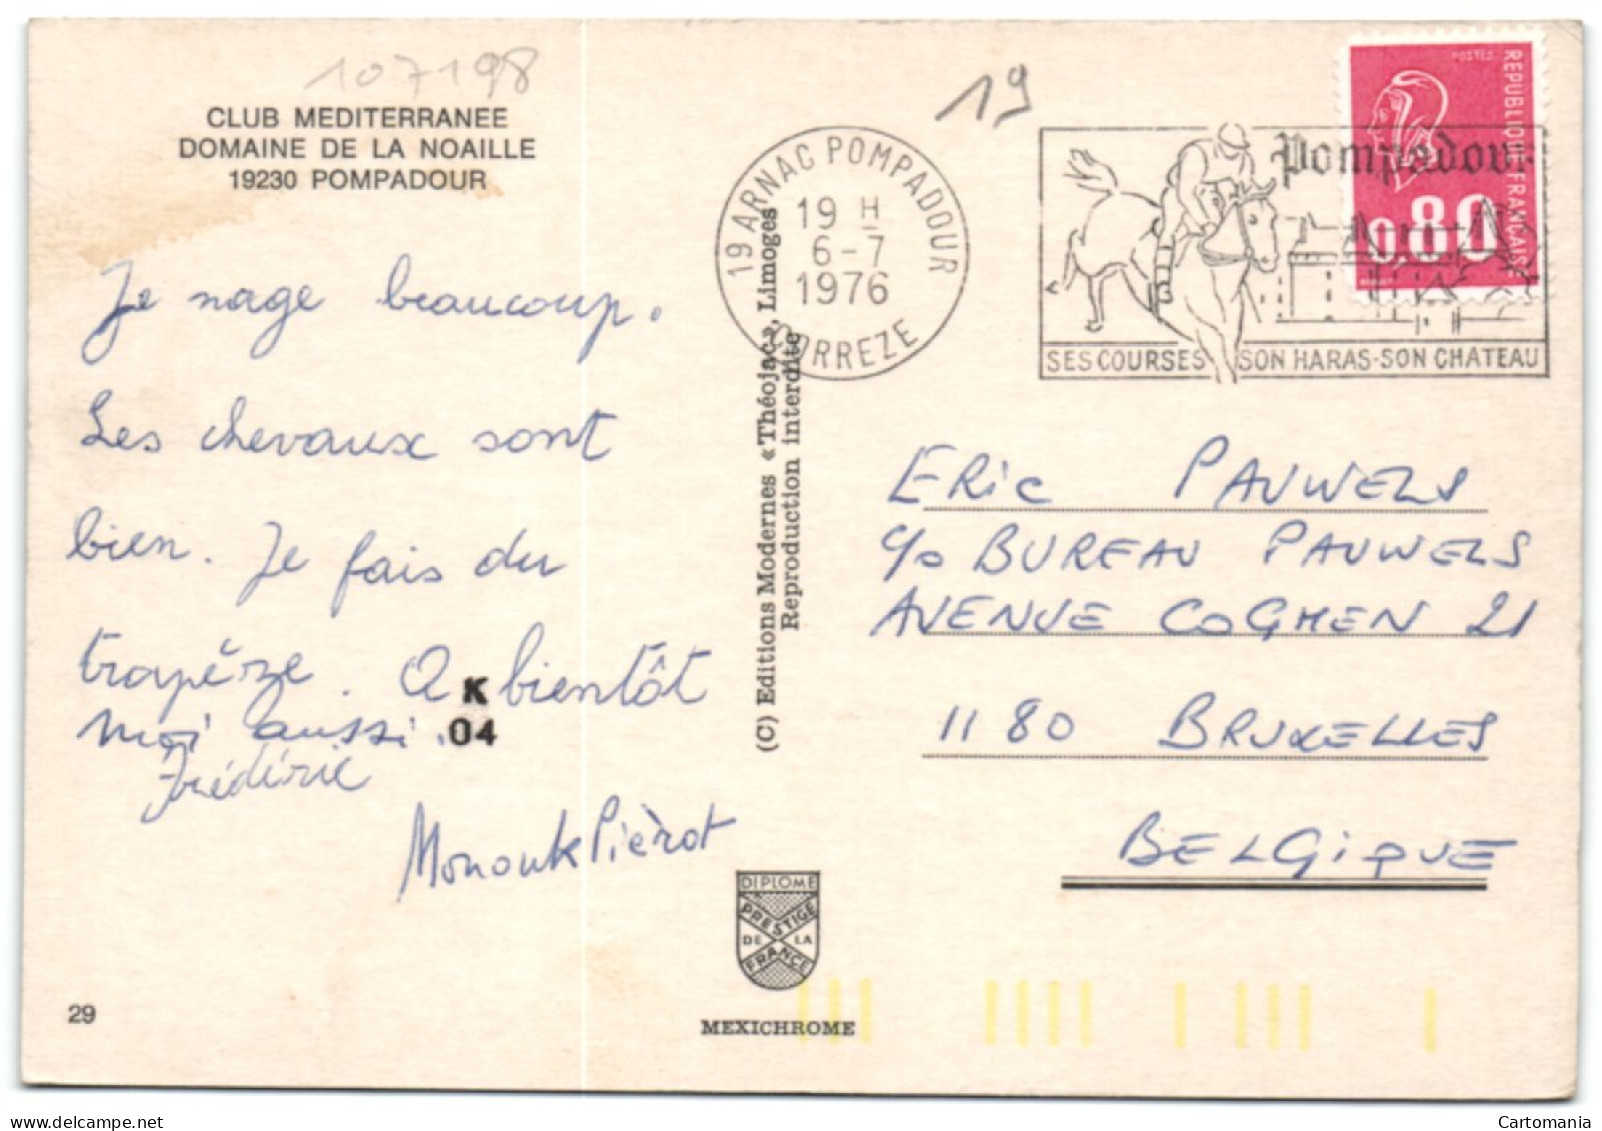 107198
CLUB MEDITERRANEE
DOMAINE DE LA NOAILLE
19230 POMPADOUR
Je nage beaucoup.
Les chevaux sont
bien. Je fais du
trapèze. A bientôt
moi aussi.
Frédéric
K
04
Pièrot
29
(C) Editions Modernes « Théojac », Limoges
Reproduction interdite
DIPLOME
PRESTIGE
DE LA
FRANCE
MEXICHROME
19
19 ARNAC POMPADOUR
19 H
6-7
1976
CORREZE
Pompadour
SES COURSES SON HARAS-SON CHATEAU
POSTES
REPUBLIQUE FRANÇAISE
0.80
ERIC PAUWELS
c/o BUREAU PAUWELS
AVENUE COGHEN 21
1180 BRUXELLES
BELGIQUE
Cartomania